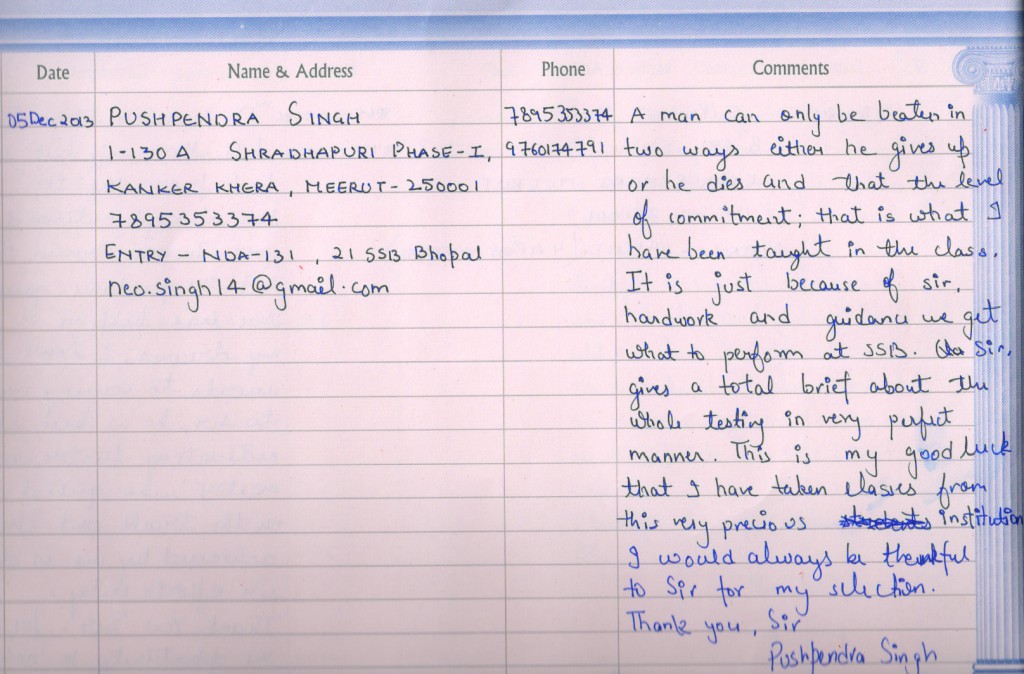 Date Name & Address Phone Comments
05 Dec 2013 PUSHPENDRA SINGH 7895353374 A man can only be beaten in
1-130 A SHRADHAPURI PHASE-I, 9760174791 two ways either he gives up
KANKER KHERA, MEERUT-250001 or he dies and that the level
7895353374 of commitment; that is what I
ENTRY - NDA-131, 21 SSB Bhopal have been taught in the class.
neo.singh14@gmail.com It is just because of sir,
hardwork and guidance we get
what to perform at SSB. Sir,
gives a total brief about the
whole testing in very perfect
manner. This is my good luck
that I have taken classes from
this very precious institution
I would always be thankful
to Sir for my selection.
Thank you, Sir
Pushpendra Singh